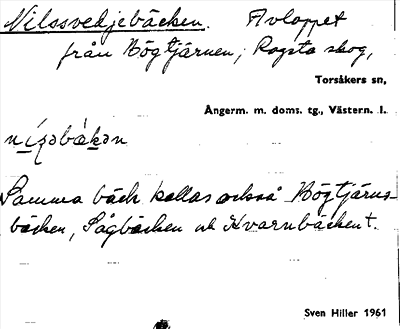 Nilssvedjebäcken. Avloppet
från Högtjärnen, Rogsta skog,
Torsåkers sn,
Ångerm. m. doms. tg., Västern. l.
Samma bäck kallas också Högtjärns-
bäcken, Sågbäcken och Kvarnbäcken†.
Sven Hiller 1961